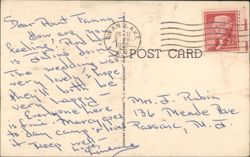 Dear Aunt Fanny,
How are you
feeling?
is doing
The wedding was
very lovely. I hope
they'll both be
very happy.
Everyone here
is fine. Marcy goes
to day camp & loves
it. Keep well.
POST CARD
Mrs. J. Rubin
136 Meade Ave
Passaic, N. J.